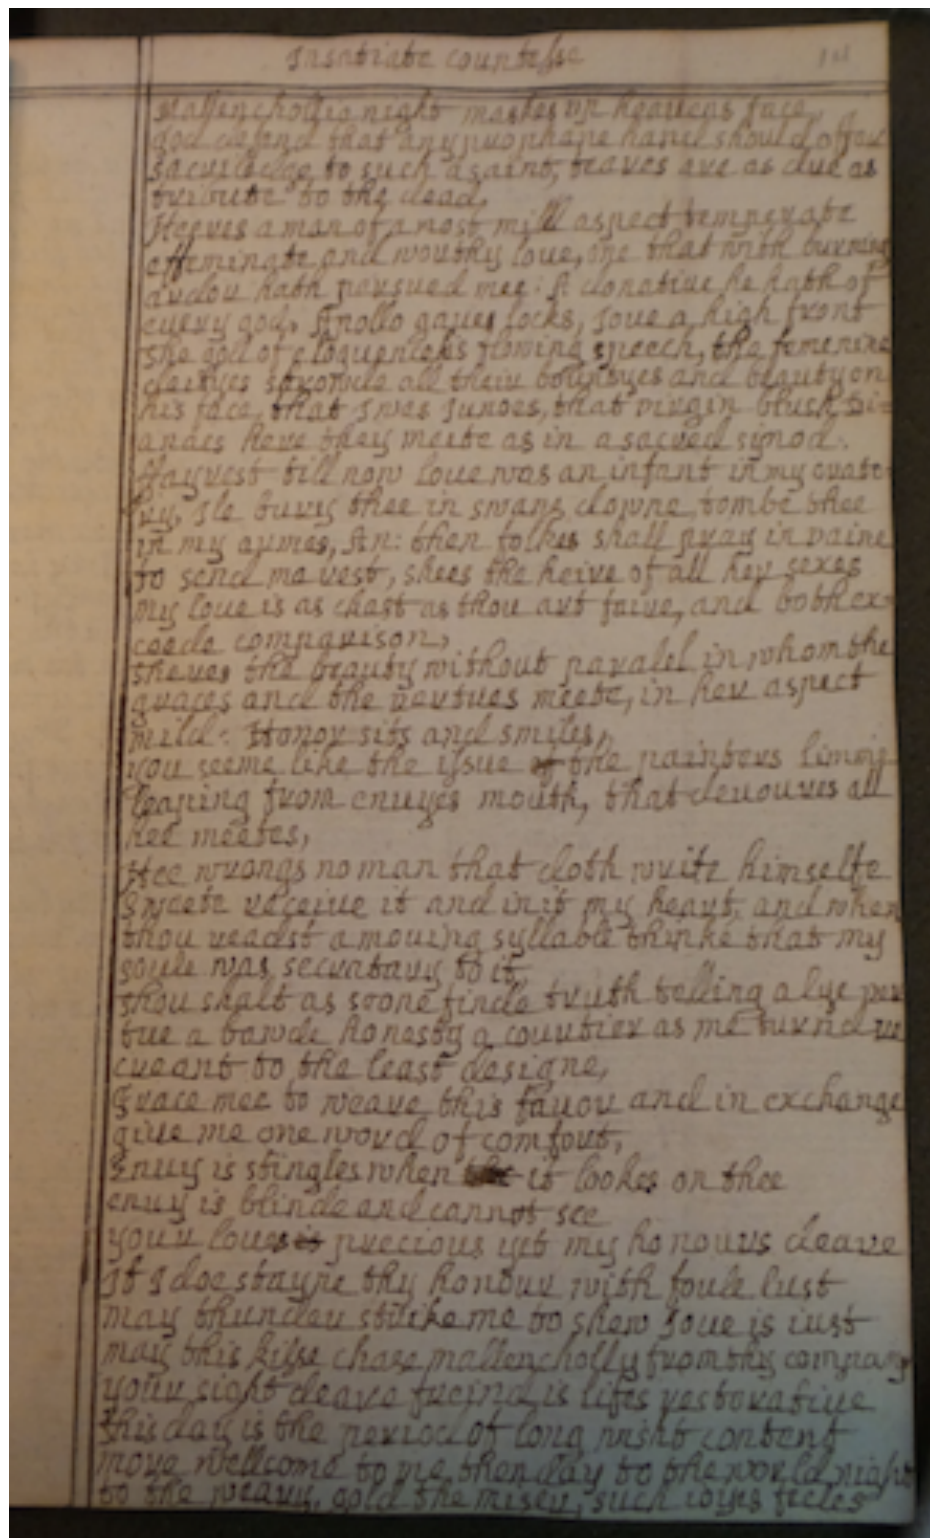 Insatiate countesse
Mallenchollie night maskes up heavens face,
god defend that any prophane hand should offer
sacriledge to such a saint, teares are as due as
tribute to the dead,
Heeres a man of a most mild aspect temperate
effeminate and worthy love, one that with burning
ardor hath pursued mee: A donative he hath of
every god, Apollo gave locks, Jove a high front
the god of eloquence his flowing speech, the femenine
deityes strowde all their bountyes and beauty on
his face, that Iwas Junoes, that virgin blush Di=
anaes here they meete as in a sacred sinod.
Hay rest till now love was an infant in my orate=
ry, Ile bury thee in swans downe, tombe thee
in my armes, An: then folkes shall pray in vaine
to send me rest, shees the heire of all her sexes
my love is as chast as thou art faire, and both ex=
ceede comparison,
theres the beauty without paralel in whom the
graces and the vertues meete, in her aspect
mild. Honor sits and smiles,
you seeme like the issue of the painters liming
leaping from enuyes mouth, that devoures all
hee meetes,
Hee wrongs no man that doth write himselfe
Sweete receive it and in it my heart, and when
thou readst a mouing syllable thinke that my
soule was secratary to it
thou shalt as soone finde truth telling a lye ver
tue a bawde honesty a courtier as me turnd re
creant to the least designe,
Grace mee to weare this favor and in exchange
give me one word of comfort,
Enuy is stingles when it lookes on thee
enuy is blinde and cannot see
your loves is precious yet my honours deare
If I doe stayne thy honour with foule lust
may thunder strike me to shew Jove is iust
may this kisse chase mallencholly from thy company
your sight deare freind is lifes restorative
this day is the period of long wisht content
more wellcome to me then day to the world night
to the weary, gold the miser, such ioyes feeles